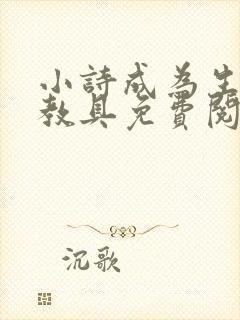 小詩成為生
教具免費閱
沉歌